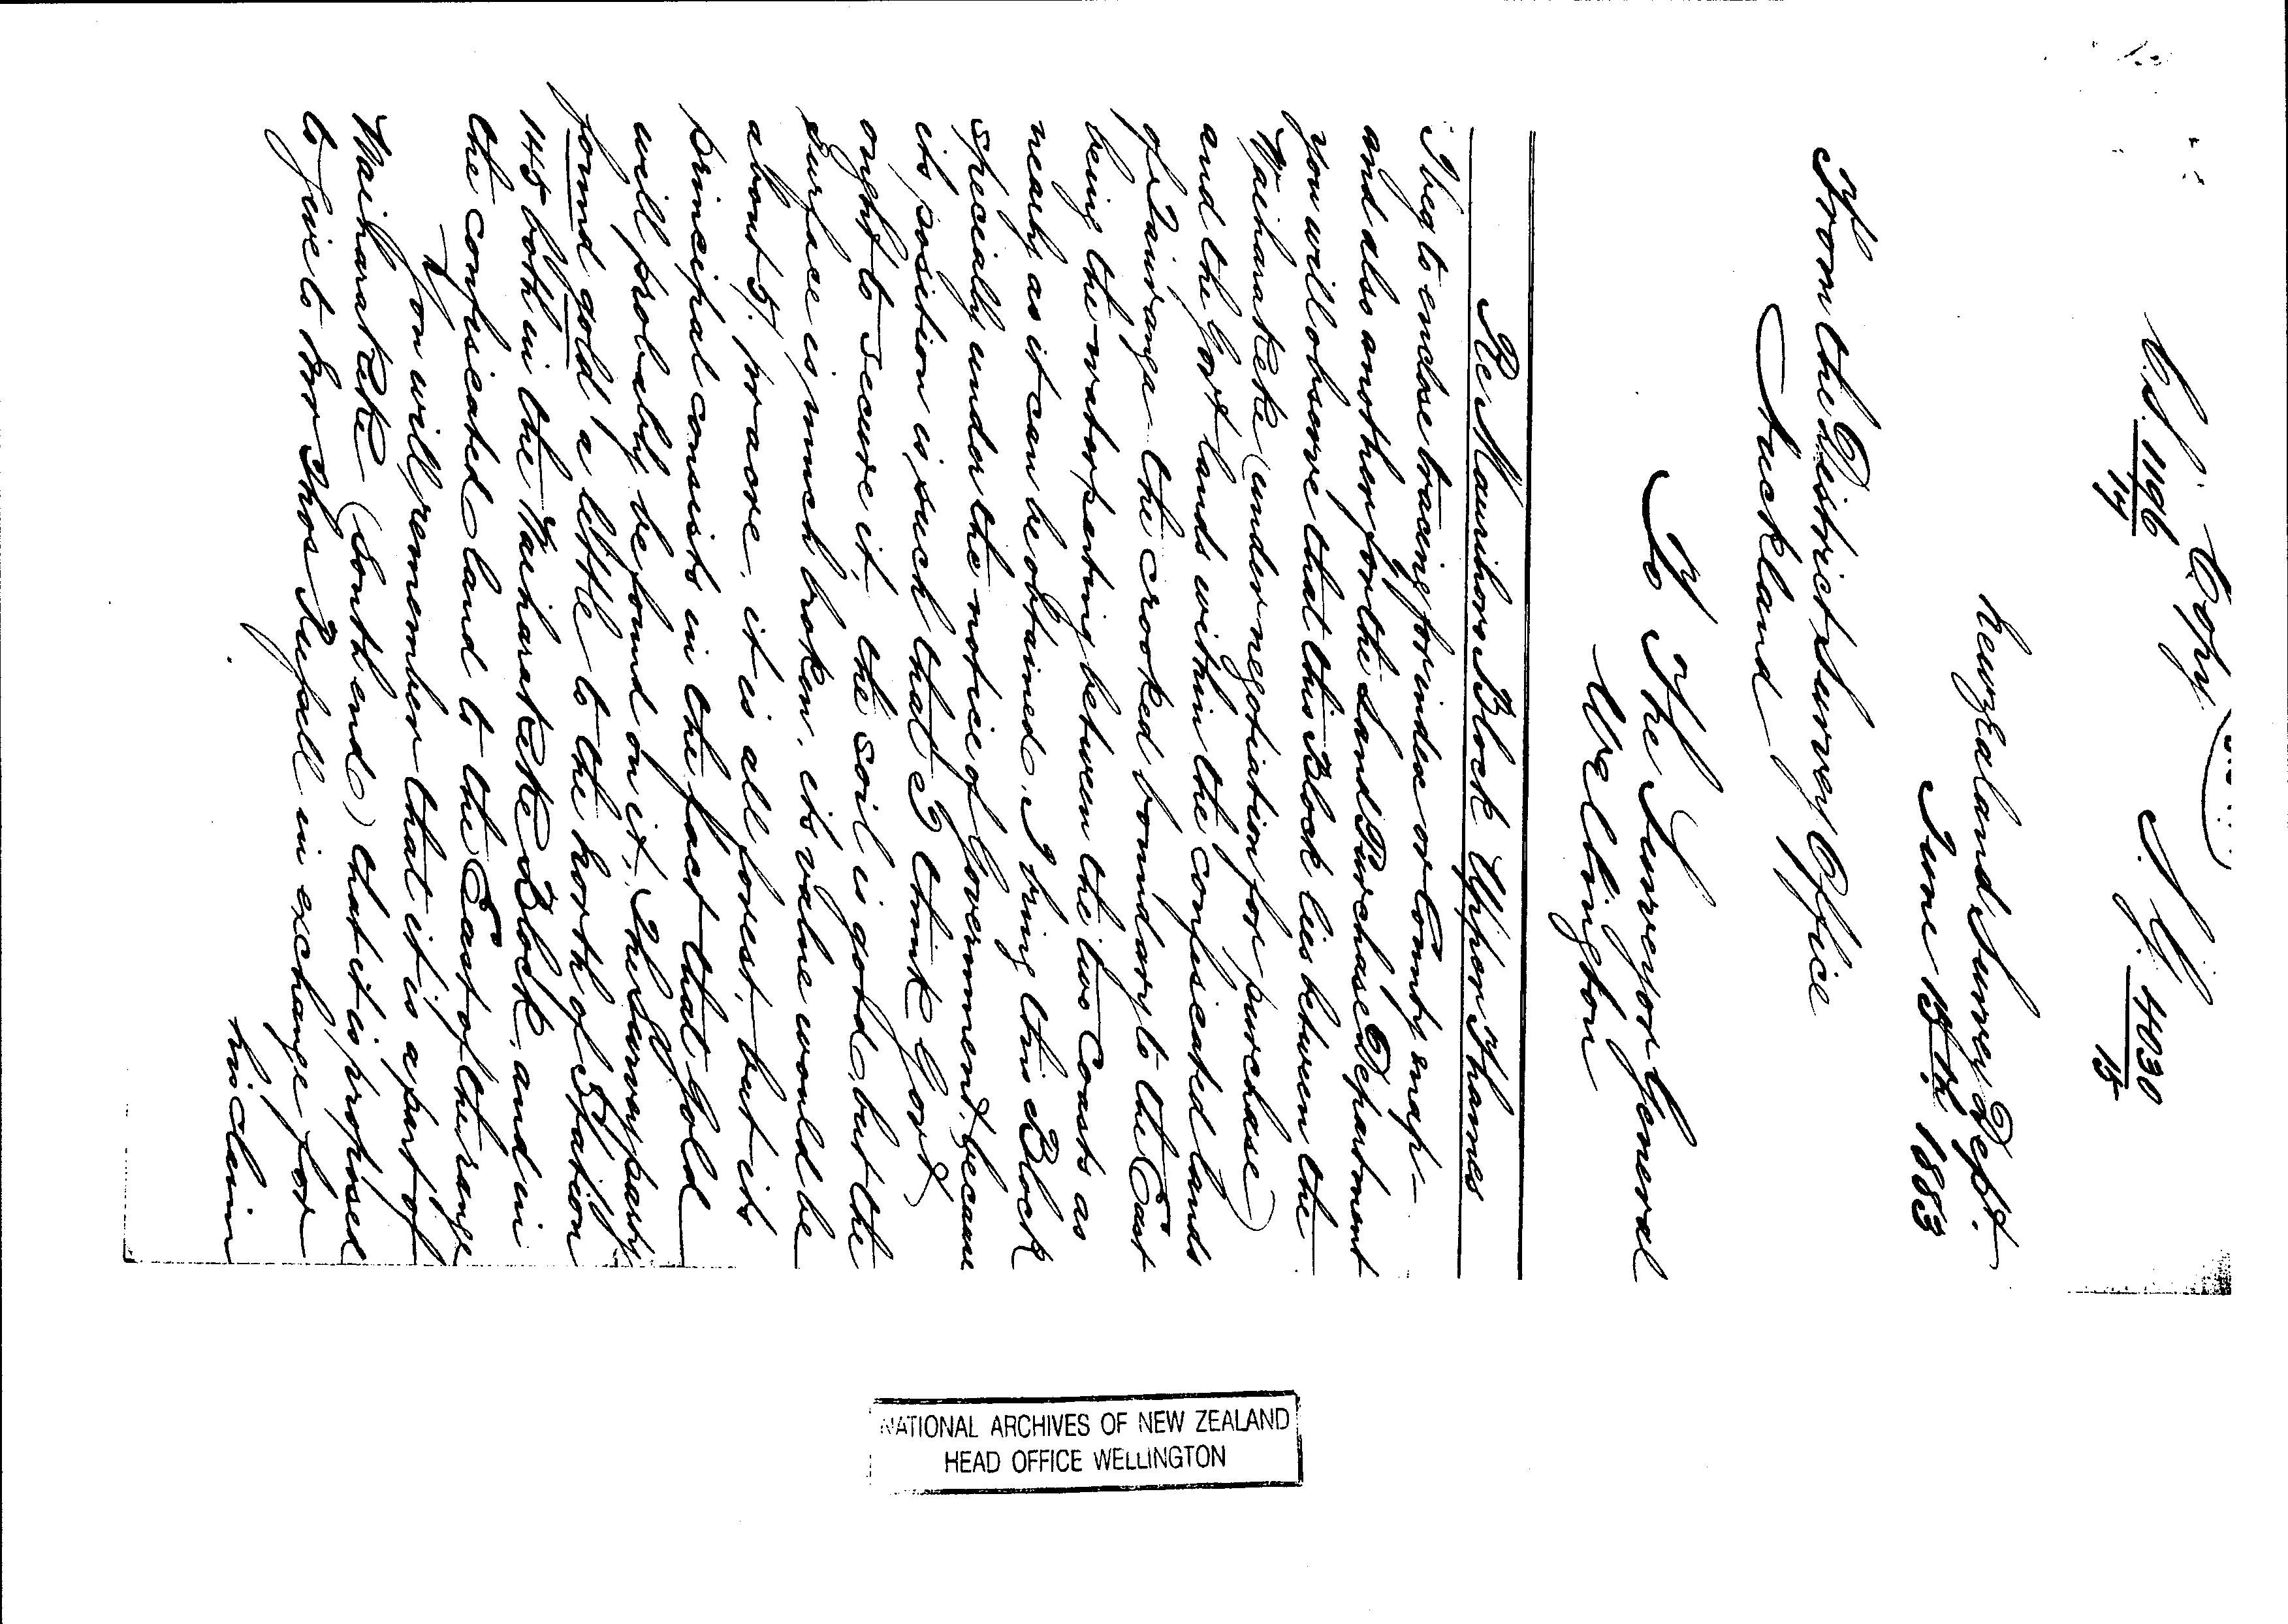 Copy.
C.S. 1196/14
S.G. 4030/15
New Zealand Survey Dept.
June 15th 1883
From the District Survey Office
Auckland
To The Surveyor General
Wellington
Re Maurihoro Block Upper Thames
I beg to enclose tracing for index or County map-
and also another for the Land Purchase Department
you will observe that this Block lies between the
Waiharakeke (under negotiation for purchase)
and the Govt lands within the confiscated lands
of Tauranga - the crooked boundary to the East
being the waterparting between the two Coasts as
nearly as it can be obtained. I bring this Block
specially under the notice of Government, because
its position is such that I think Govt
ought to secure it, the soil is good, but the
surface is much broken, its value would be
about 5/. per acre. it is all forest, but its
principal consists in the fact that gold
will probably be found on it, The Survey party
found gold a little to the North of Station
145 both in the Waiharakeke Block, and in
the confiscated land to the East of the range
You will remember that it is a part of
Waiharakeke (South end) that it is proposed
to give to Mr Thos Russell in exchange for
his claim
NATIONAL ARCHIVES OF NEW ZEALAND
HEAD OFFICE WELLINGTON